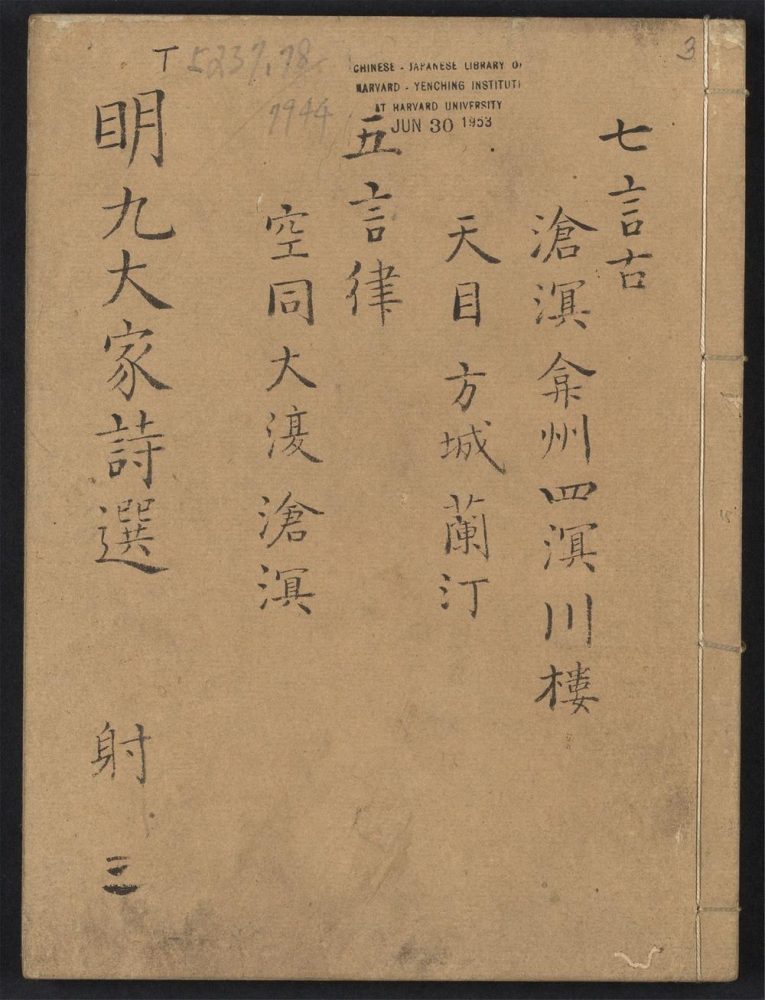 3
CHINESE - JAPANESE LIBRARY O
HARVARD - YENCHING INSTITUT
AT HARVARD UNIVERSITY
JUN 30 1953
T 5237.78
7944
七言古
滄溟弇州四溟川樓
天目方城蘭汀
五言律
空同大復滄溟
眀九大家詩選 射 三